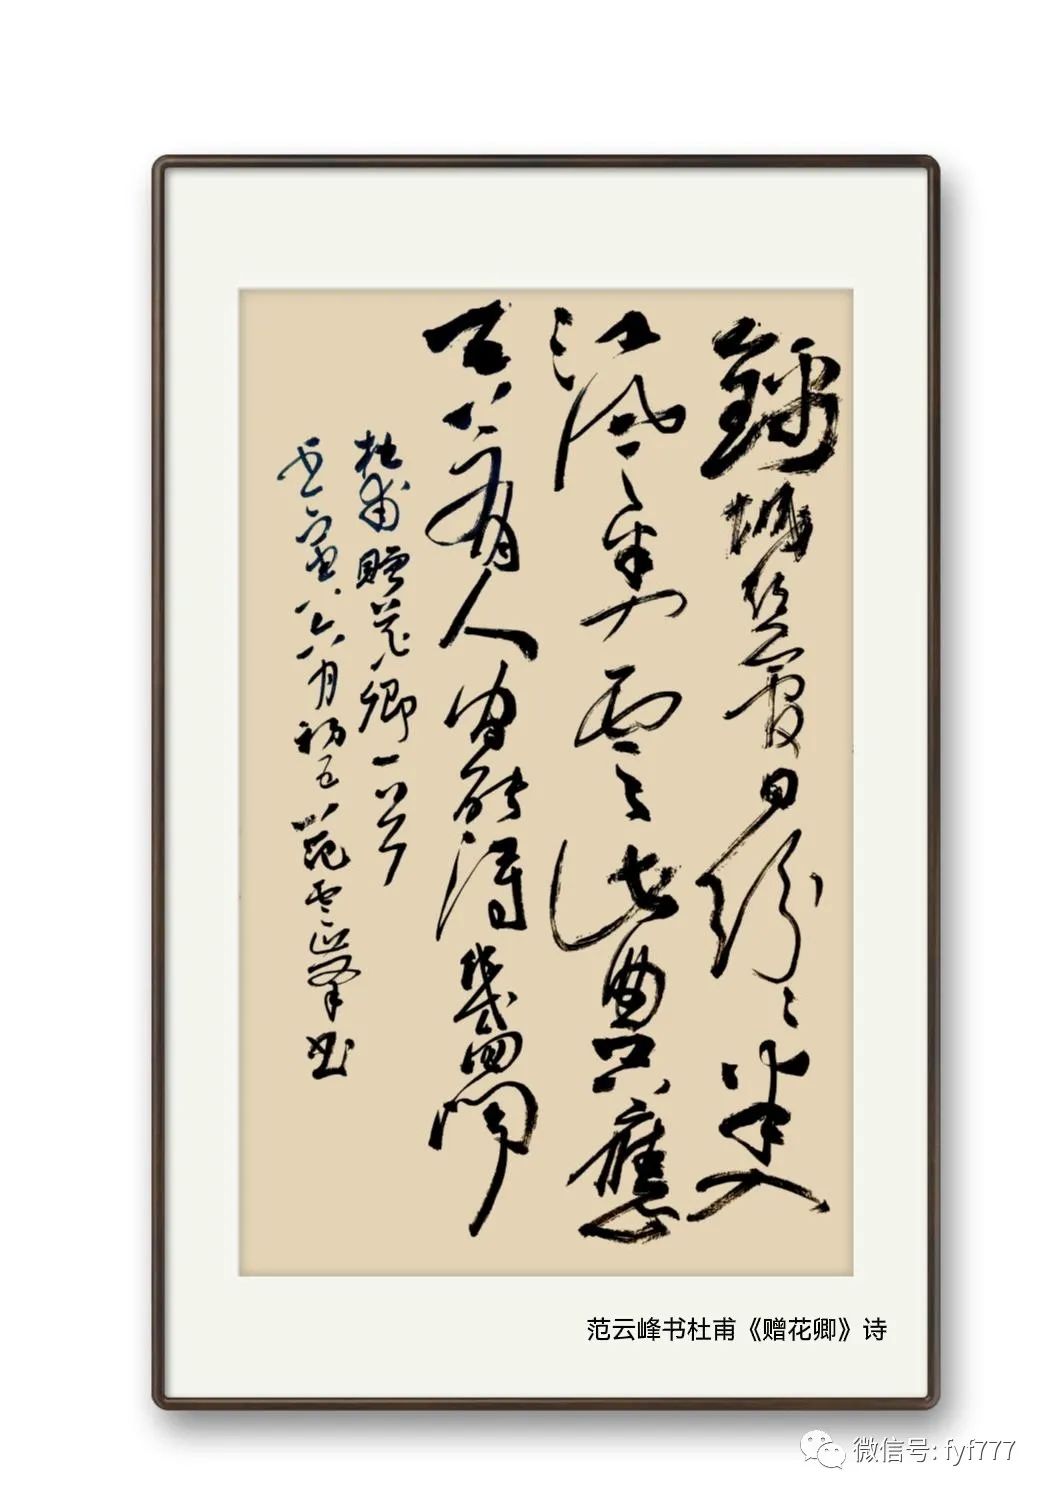 錦城丝管日紛〻半入
江風半入雲此曲只應
天上有人间能得幾回闻
杜甫贈花卿一首
壬寅年六月初五范雲峯书
范云峰书杜甫《赠花卿》诗
微信号: fyf777